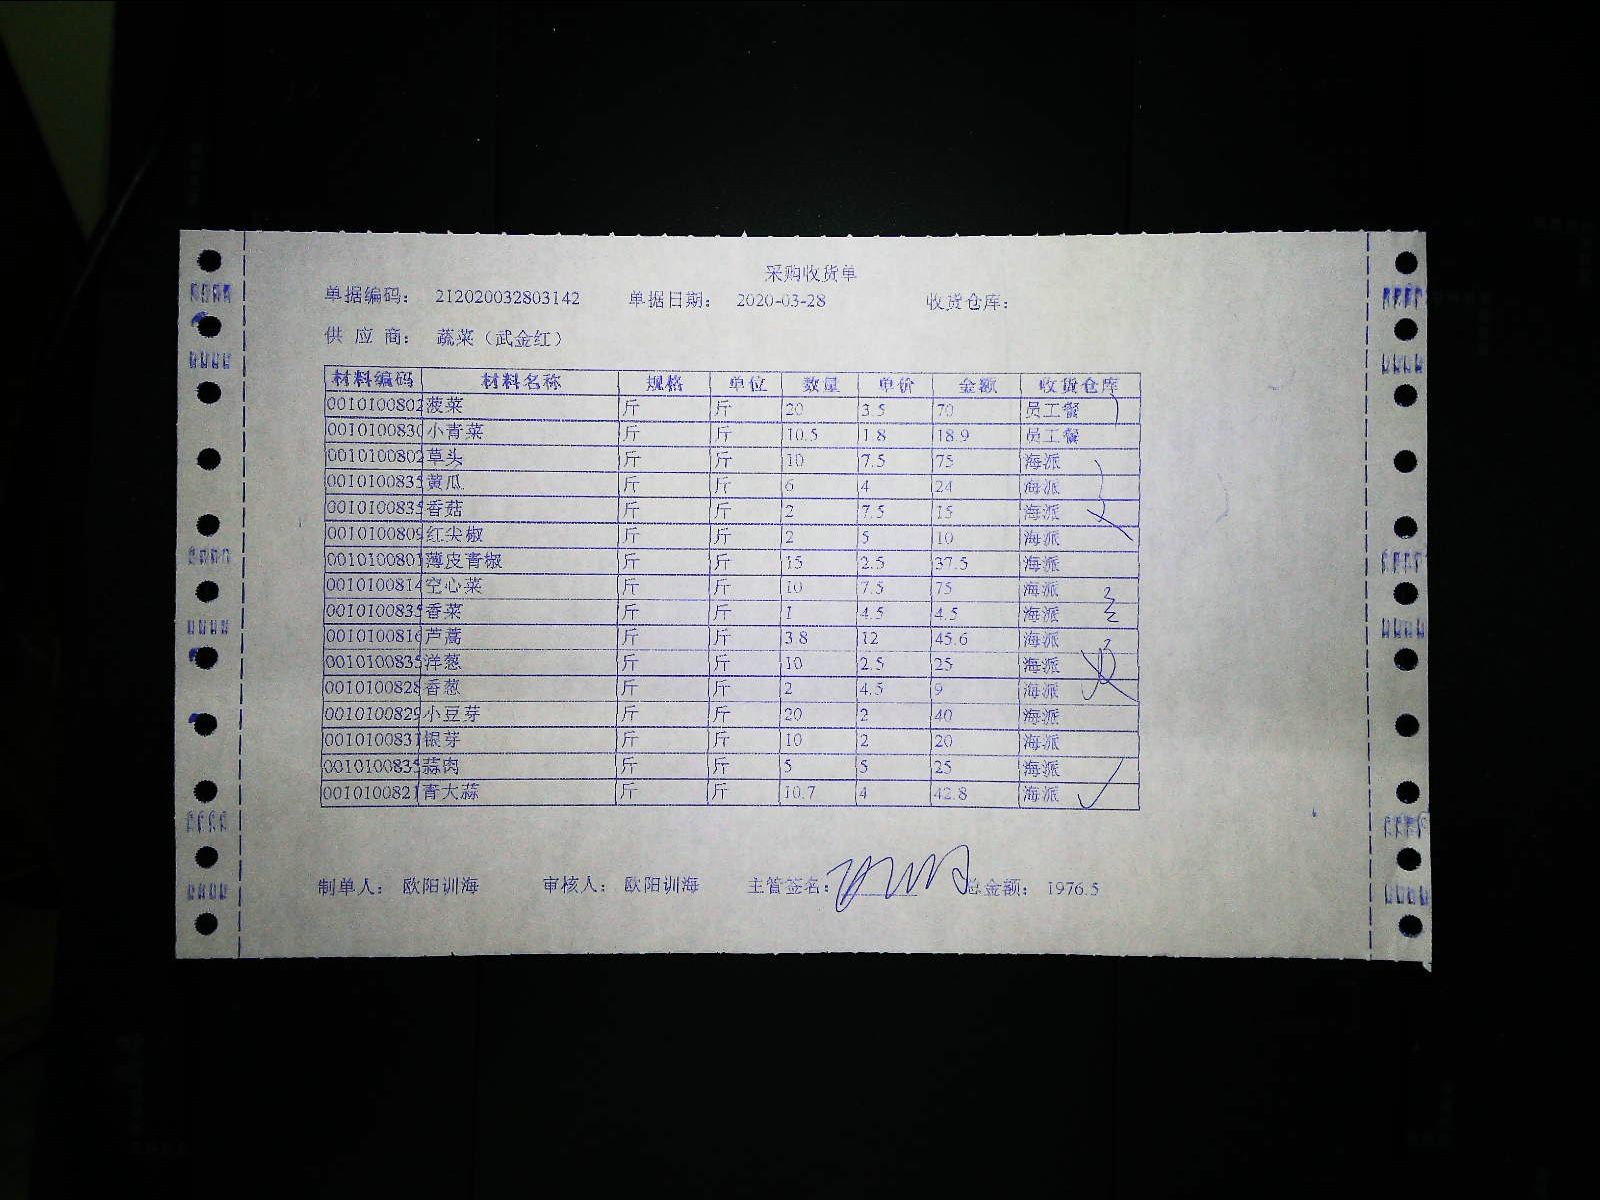 采购收货单
单据编码： 212020032803142 单据日期： 2020-03-28 收货仓库：
供 应 商： 蔬菜（武金红）
材料编码 材料名称 规格 单位 数量 单价 金额 收货仓库
0010100802 菠菜 斤 斤 20 3.5 70 员工餐
0010100830 小青菜 斤 斤 10.5 1.8 18.9 员工餐
0010100802 草头 斤 斤 10 7.5 75 海派
0010100835 黄瓜 斤 斤 6 4 24 海派
0010100835 香菇 斤 斤 2 7.5 15 海派
0010100809 红尖椒 斤 斤 2 5 10 海派
0010100801 薄皮青椒 斤 斤 15 2.5 37.5 海派
0010100814 空心菜 斤 斤 10 7.5 75 海派
0010100835 香菜 斤 斤 1 4.5 4.5 海派
0010100816 芦蒿 斤 斤 3.8 12 45.6 海派
0010100835 洋葱 斤 斤 10 2.5 25 海派
0010100828 香葱 斤 斤 2 4.5 9 海派
0010100829 小豆芽 斤 斤 20 2 40 海派
0010100831 银芽 斤 斤 10 2 20 海派
0010100835 蒜肉 斤 斤 5 5 25 海派
0010100821 青大蒜 斤 斤 10.7 4 42.8 海派
制单人： 欧阳训海 审核人： 欧阳训海 主管签名： 总金额： 1976.5